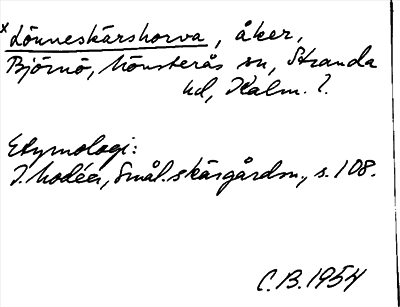 x Lönneskärshorva, åker,
Björnö, Mönsterås sn, Stranda
hd, Kalm. l.
Etymologi:
I. Modéer, Smål. skärgårdsn., s. 108.
C.B. 1954